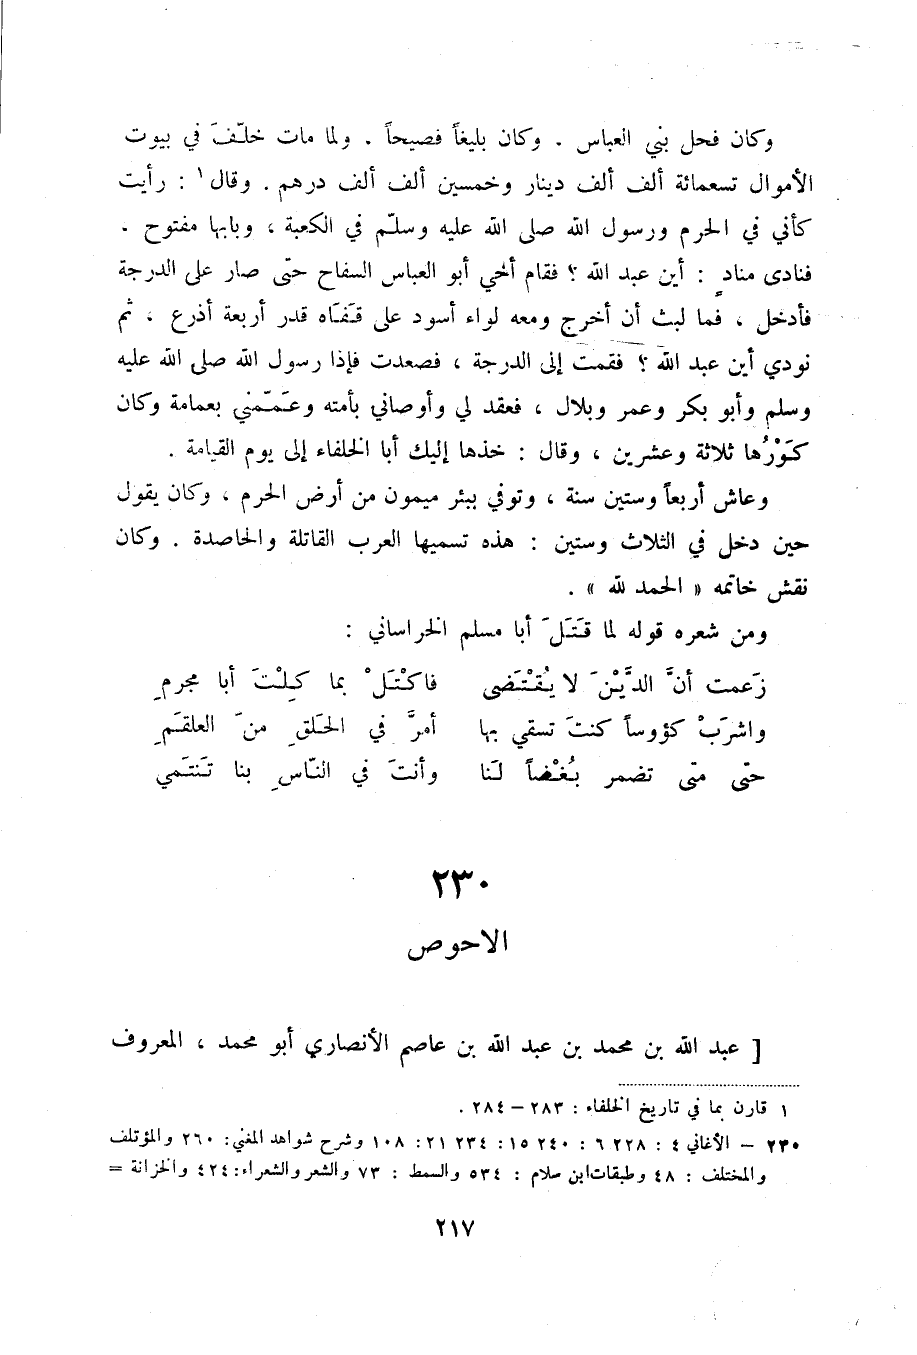 وكان فحل بني العباس . وكان بليغاً فصيحاً . ولما مات خلّفَ في بيوت
الأموال تسعمائة ألف ألف دينار وخمسين ألف ألف درهم . وقال ١ : رأيت
كأني في الحرم ورسول الله صلى الله عليه وسلّم في الكعبة ، وبابها مفتوح .
فنادى منادٍ : أين عبد الله ؟ فقام أخي أبو العباس السفاح حتّى صار على الدرجة
فأدخل ، فما لبث أن أخرج ومعه لواء أسود على قَنَاه قدر أربعة أذرع ، ثم
نودي أين عبد الله ؟ فقمت إلى الدرجة ، فصعدت فإذا رسول الله صلى الله عليه
وسلم وأبو بكر وعمر وبلال ، فعقد لي وأوصاني بأمته وعَمّمني بعمامة وكان
كَوْرُها ثلاثة وعشرين ، وقال : خذها إليك أبا الخلفاء إلى يوم القيامة .
وعاش أربعاً وستين سنة ، وتوفي ببئر ميمون من أرض الحرم ، وكان يقول
حين دخل في الثلاث وستين : هذه تسميها العرب القاتلة والحاصدة . وكان
نقش خاتمه « الحمد لله » .
ومن شعره قوله لما قَتَلَ أبا مسلم الخراساني :
زعمت أنَّ الدَّيْنَ لا يُقْتَضى فاكْتَلْ بما كِلْتَ أبا مجرمِ
واشرَبْ كؤوساً كنتَ تسقي بها أمرَّ في الحَلقِ منَ العلقَمِ
حتّى متى تضمر بُغْضاً لَنا وأنتَ في النّاسِ بنا تَنتَمي
٢٣٠
الاحوص
[ عبد الله بن محمد بن عبد الله بن عاصم الأنصاري أبو محمد ، المعروف
١ قارن بما في تاريخ الخلفاء : ٢٨٣ – ٢٨٤ .
٢٣٠ – الأغاني ٤ : ٢٢٨ ٦ : ٢٤٠ ١٥ : ٢٣٤ ٢١ : ١٠٨ وشرح شواهد المغني : ٢٦٠ والمؤتلف
والمختلف : ٤٨ وطبقات ابن سلام : ٥٣٤ والسمط : ٧٣ والشعر والشعراء : ٤٢٤ والخزانة =
٢١٧